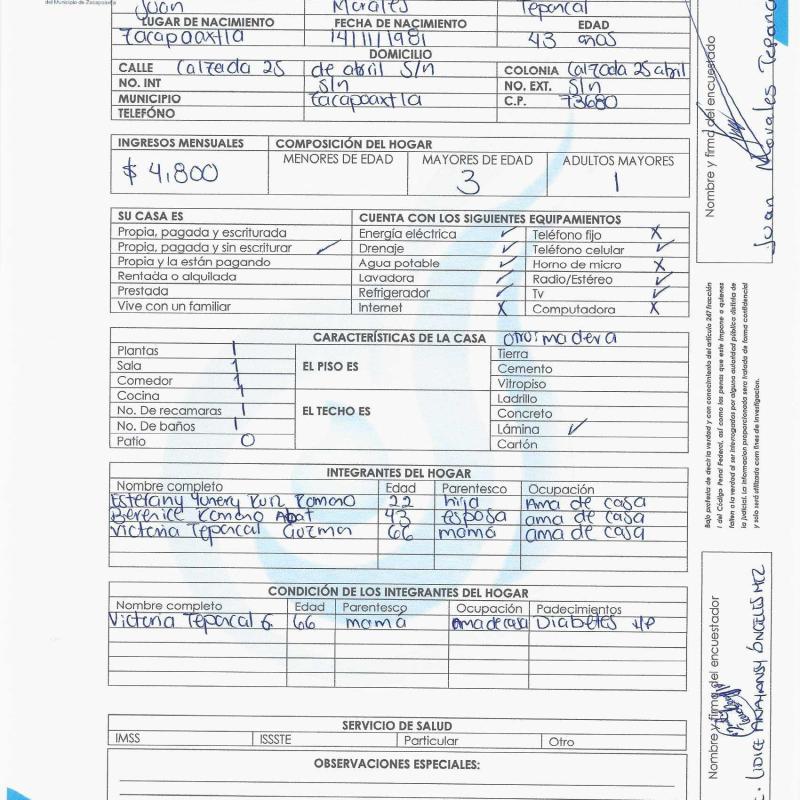 del Municipio de Zacapoaxtla
Juan Morales Teporcal
LUGAR DE NACIMIENTO FECHA DE NACIMIENTO EDAD
Zacapoaxtla 14/11/1981 43 años
DOMICILIO
CALLE Calzada 25 de abril S/n COLONIA Calzada 25 abril
NO. INT S/n NO. EXT. S/n
MUNICIPIO Zacapoaxtla C.P. 73680
TELEFÓNO
INGRESOS MENSUALES COMPOSICIÓN DEL HOGAR
$ 4,800 MENORES DE EDAD MAYORES DE EDAD ADULTOS MAYORES
3 1
SU CASA ES CUENTA CON LOS SIGUIENTES EQUIPAMIENTOS
Propia, pagada y escriturada Energía eléctrica ✓ Teléfono fijo X
Propia, pagada y sin escriturar ✓ Drenaje ✓ Teléfono celular ✓
Propia y la están pagando Agua potable ✓ Horno de micro X
Rentada o alquilada Lavadora ✓ Radio/Estéreo ✓
Prestada Refrigerador ✓ Tv ✓
Vive con un familiar Internet X Computadora X
CARACTERÍSTICAS DE LA CASA otro: madera
Plantas 1 EL PISO ES Tierra
Sala 1 Cemento
Comedor 1 Vitropiso
Cocina 1 EL TECHO ES Ladrillo
No. De recamaras 1 Concreto
No. De baños 1 Lámina ✓
Patio 0 Cartón
INTEGRANTES DEL HOGAR
Nombre completo Edad Parentesco Ocupación
Estefany 22 hija Ama de casa
Berenice Romano 43 esposa ama de casa
Victoria Teporcal Guzman 66 mamá ama de casa
CONDICIÓN DE LOS INTEGRANTES DEL HOGAR
Nombre completo Edad Parentesco Ocupación Padecimientos
Victoria Teporcal G. 66 mamá ama de casa Diabetes
SERVICIO DE SALUD
IMSS ISSSTE Particular Otro
OBSERVACIONES ESPECIALES:
Nombre y firma del encuestado
Juan Morales Teporcal
Bajo protesta de decir la verdad y con conocimiento del artículo 247 fracción
I del Código Penal Federal, así como las penas que este impone a quienes
falten a la verdad al ser interrogados por alguna autoridad pública distinta de
la judicial. La información proporcionada será tratada de forma confidencial
y solo será utilizada con fines de investigación.
Nombre y firma del encuestador